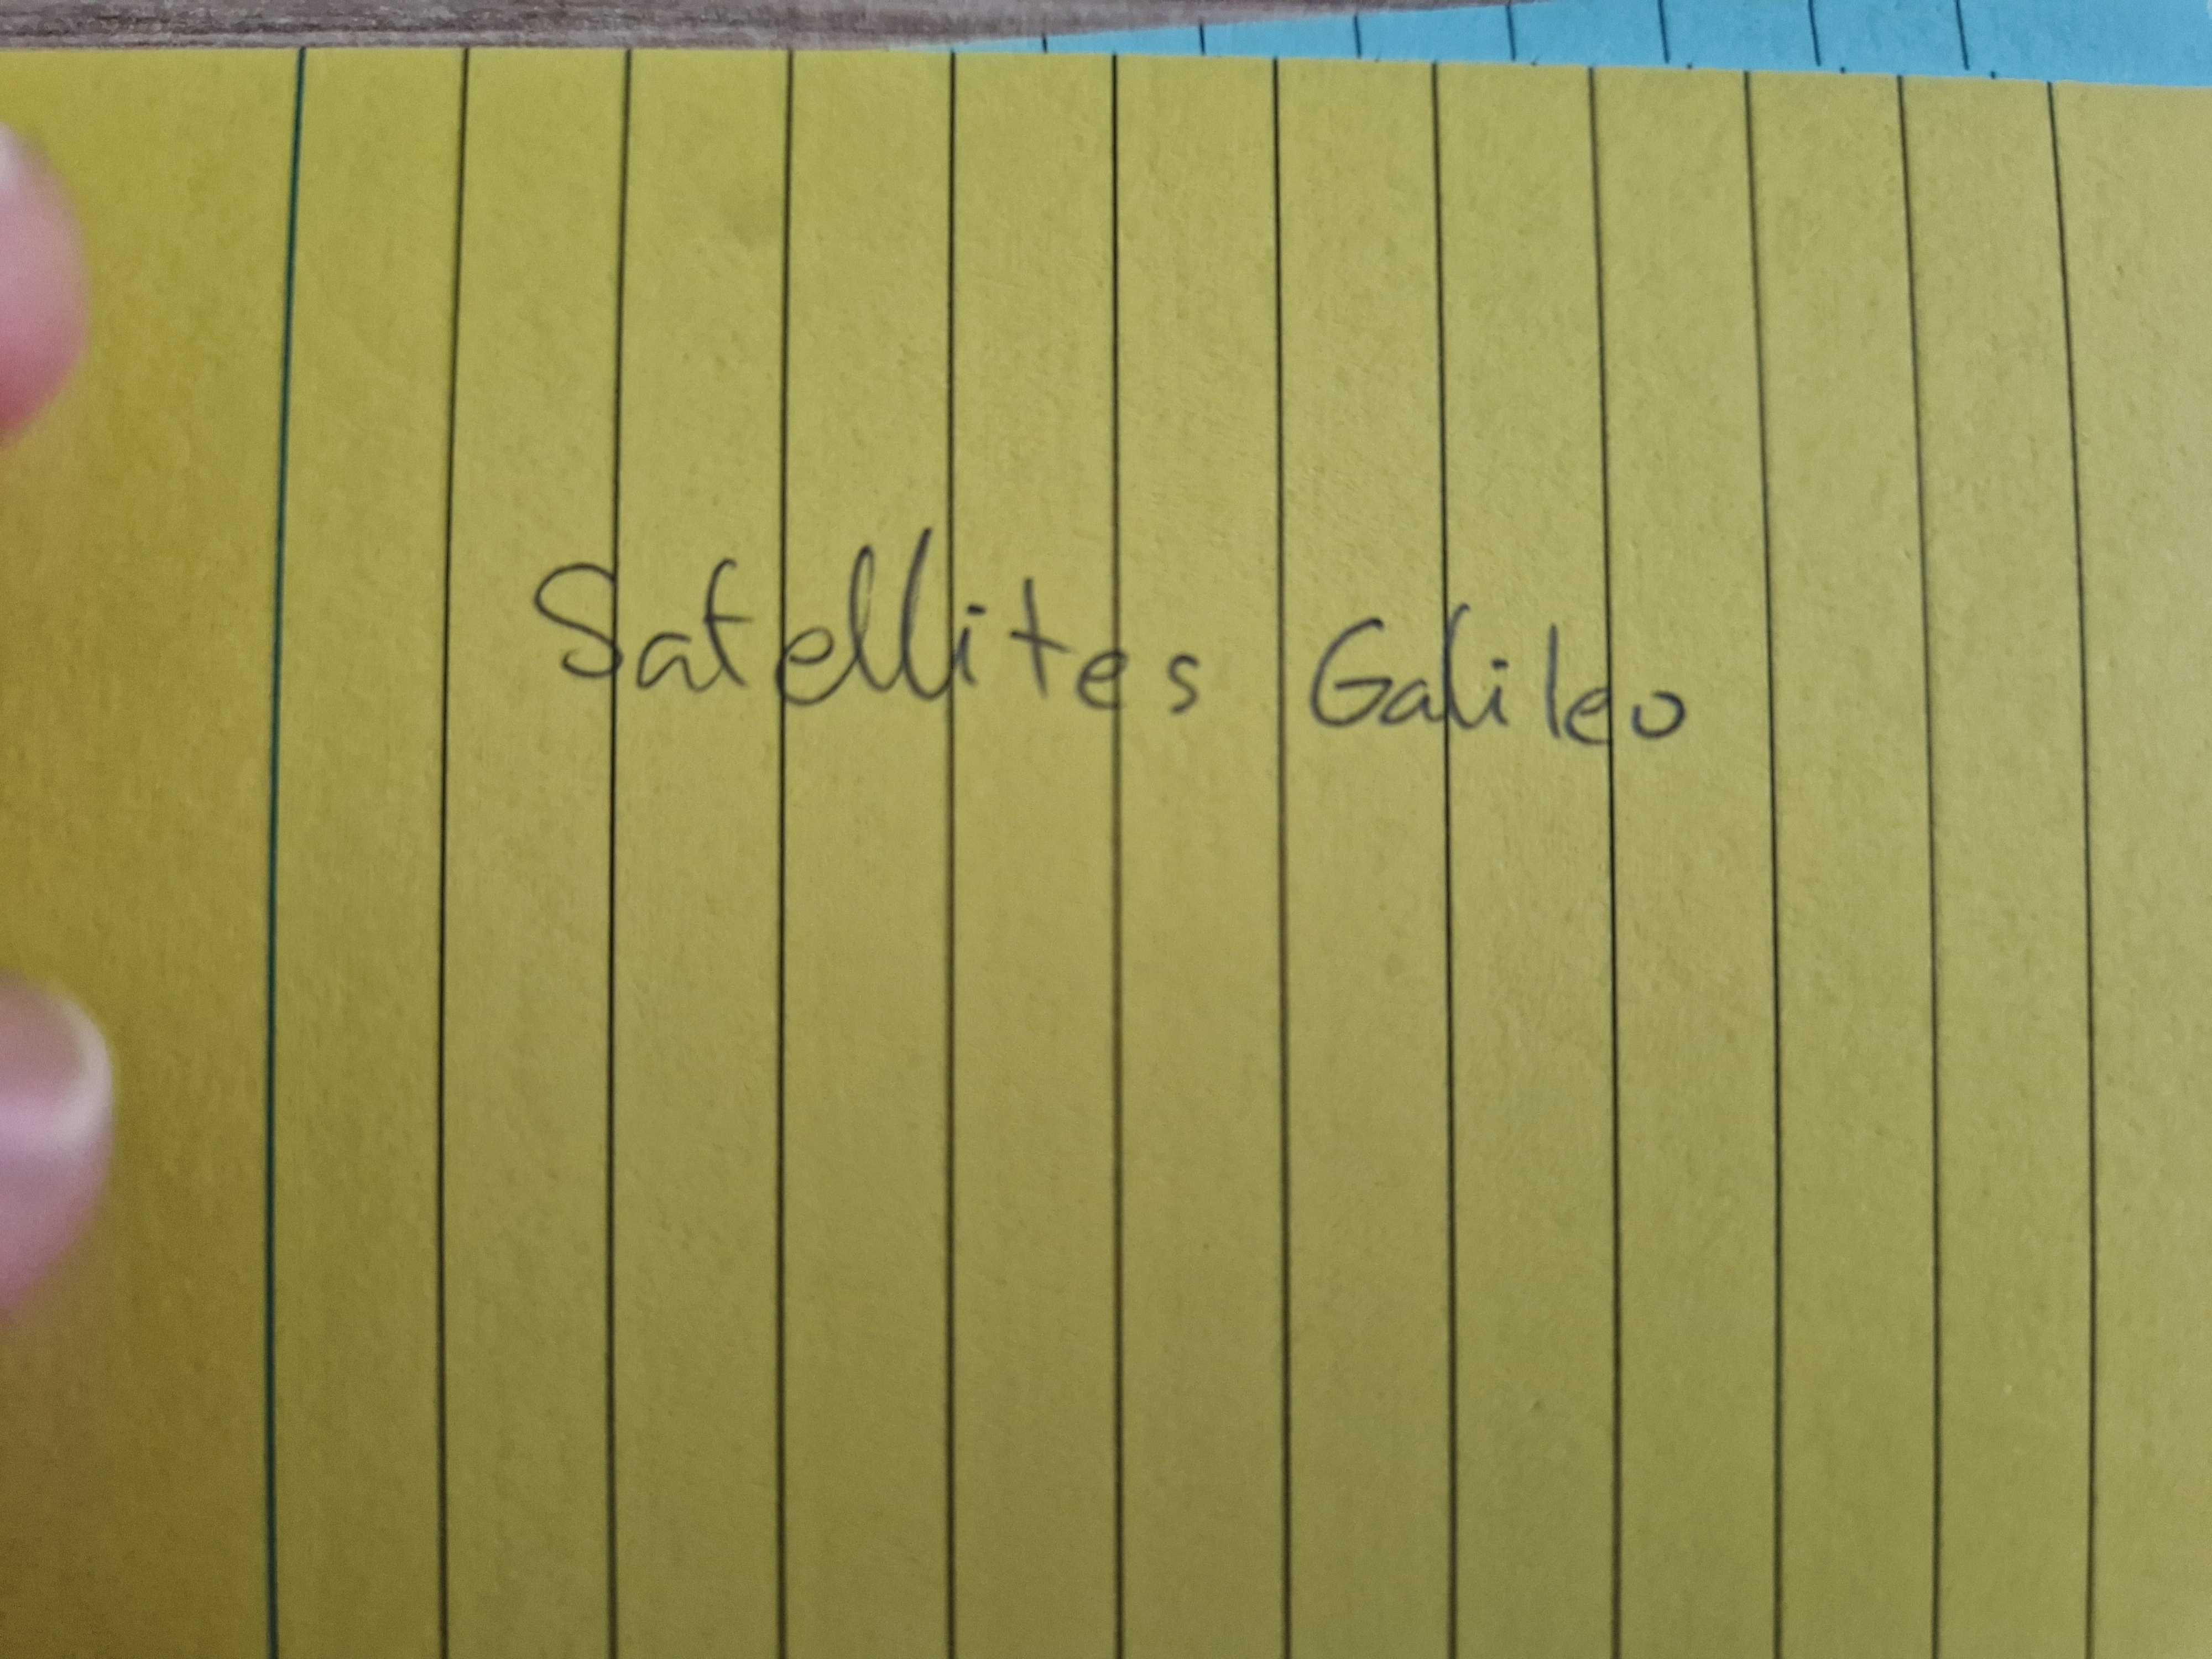 Satellites Galileo